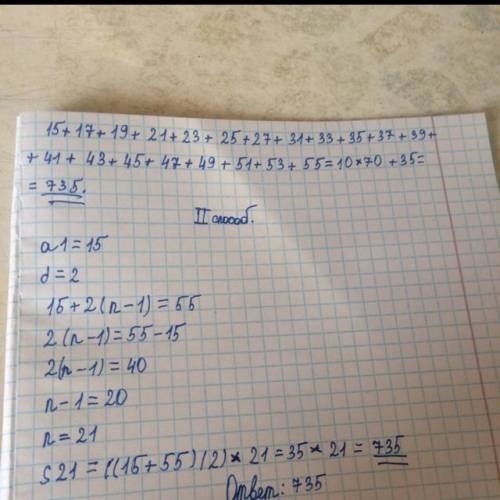 15+17+19+ 21+23+ 25+27+ 31+33+35+37+39+
+ 41+ 43+45+ 47+49+51+53+ 55=10*70 +35=
= 735.
II способ.
a1=15
d=2
15+2(n-1)=55
2(n-1)=55-15
2(n-1)=40
n-1=20
n=21
S21=((15+55)(2)*21=35*21=735
Ответ: 735